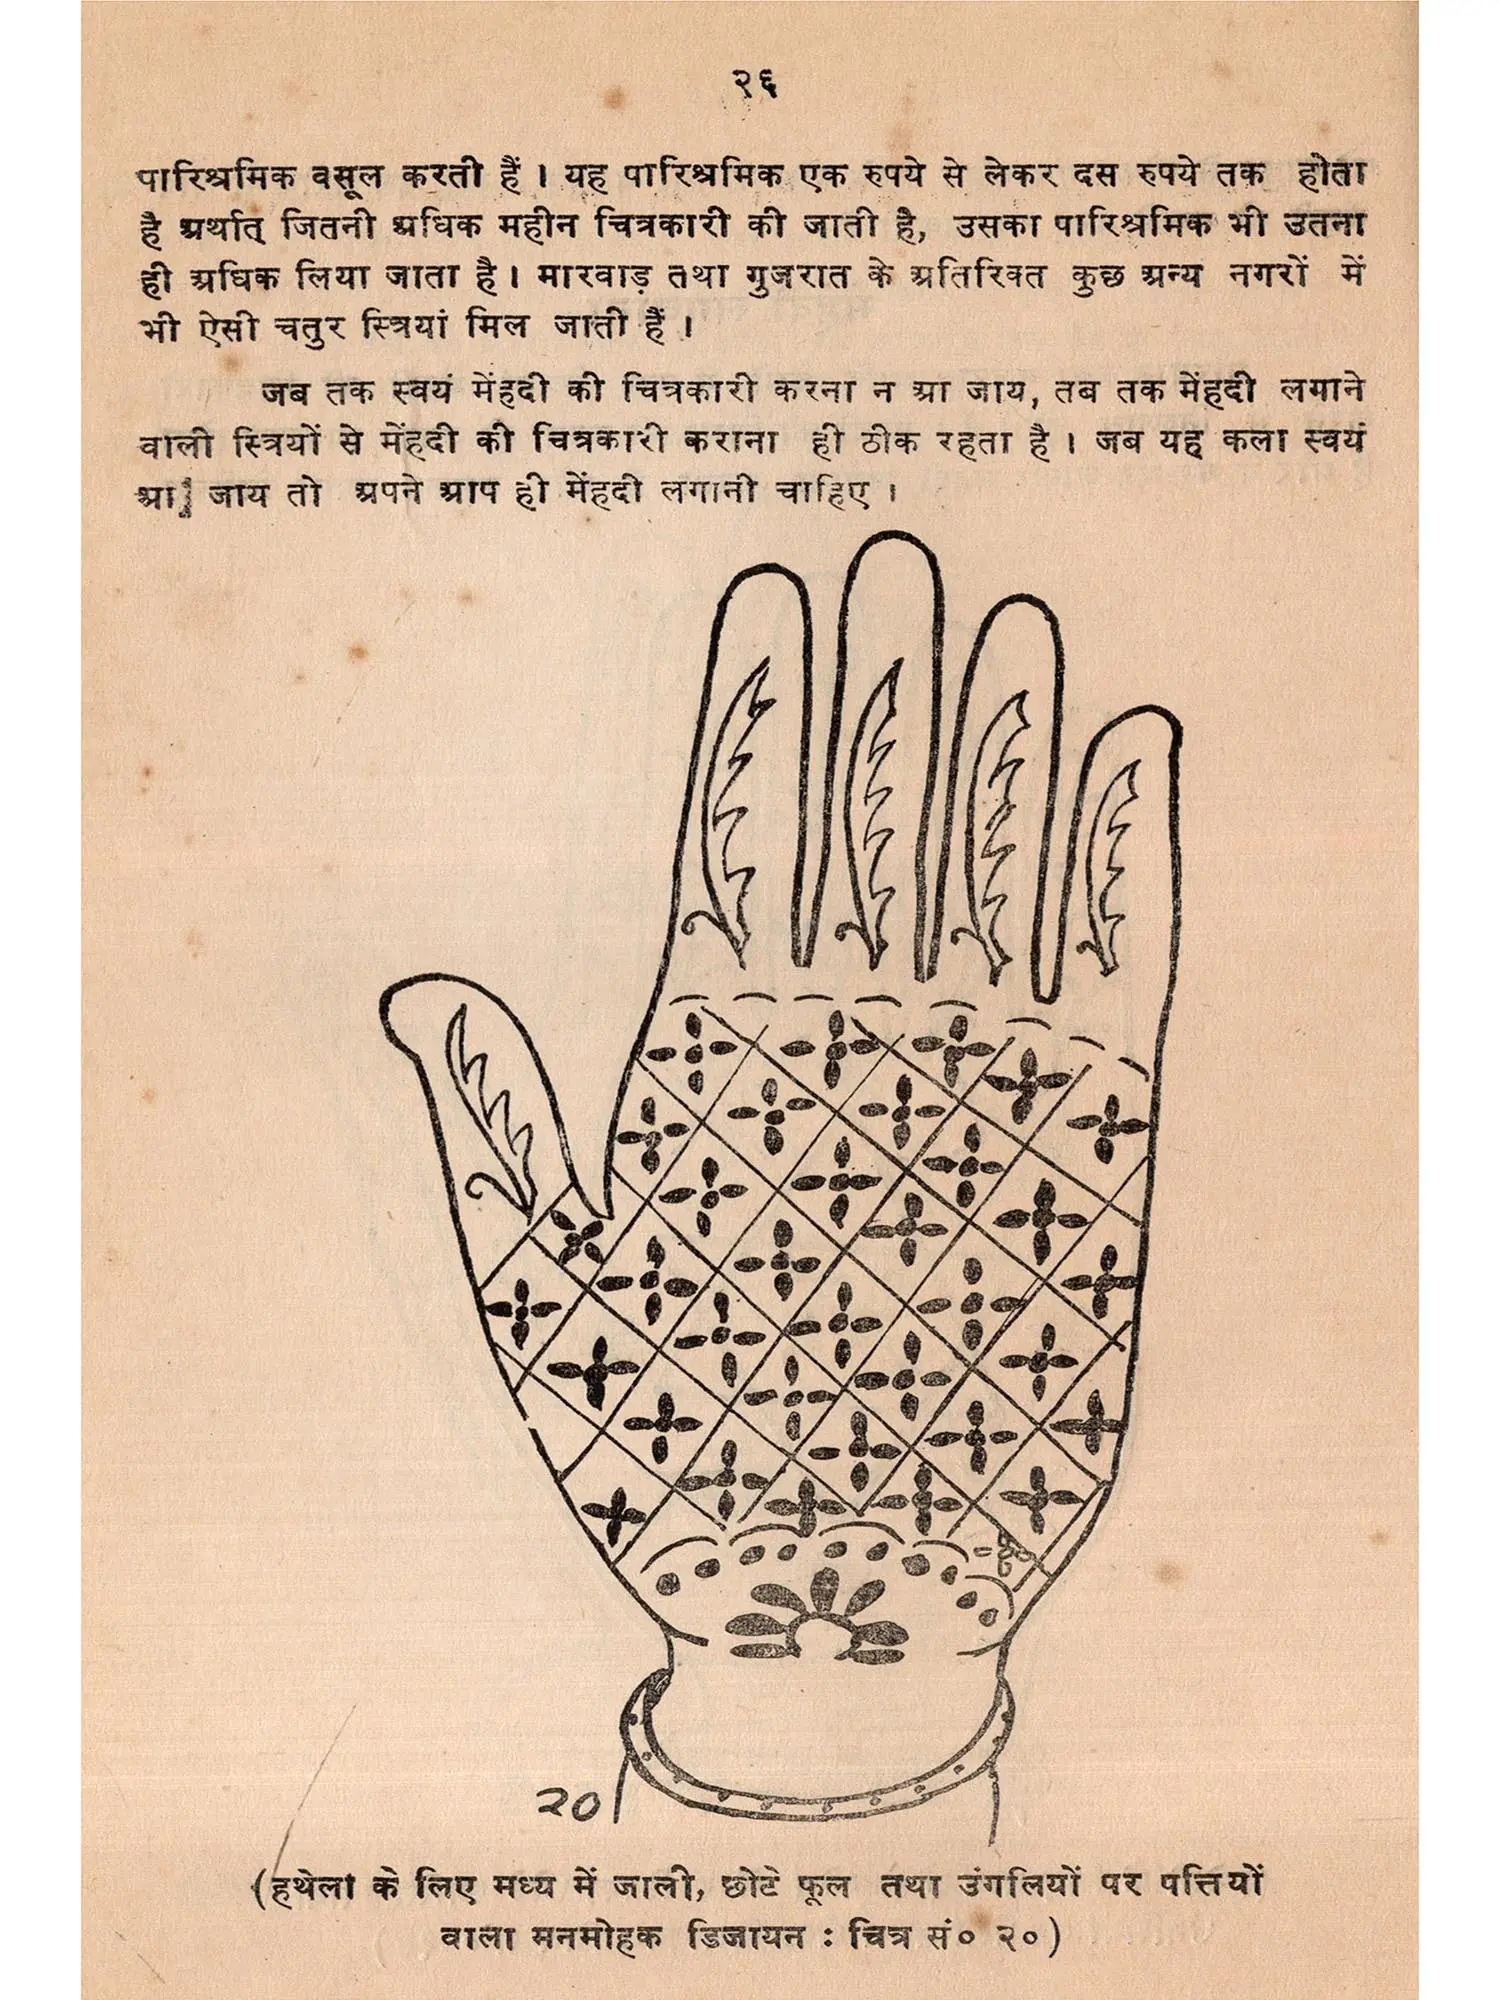 २६
पारिश्रमिक वसूल करती हैं । यह पारिश्रमिक एक रुपये से लेकर दस रुपये तक होता
है अर्थात् जितनी अधिक महीन चित्रकारी की जाती है, उसका पारिश्रमिक भी उतना
ही अधिक लिया जाता है । मारवाड़ तथा गुजरात के अतिरिक्त कुछ अन्य नगरों में
भी ऐसी चतुर स्त्रियां मिल जाती हैं ।
जब तक स्वयं मेंहदी की चित्रकारी करना न आ जाय, तब तक मेंहदी लगाने
वाली स्त्रियों से मेंहदी की चित्रकारी कराना ही ठीक रहता है । जब यह कला स्वयं
आ जाय तो अपने आप ही मेंहदी लगानी चाहिए ।
२०
(हथेली के लिए मध्य में जाली, छोटे फूल तथा उंगलियों पर पत्तियों
वाला मनमोहक डिजायन : चित्र सं० २०)